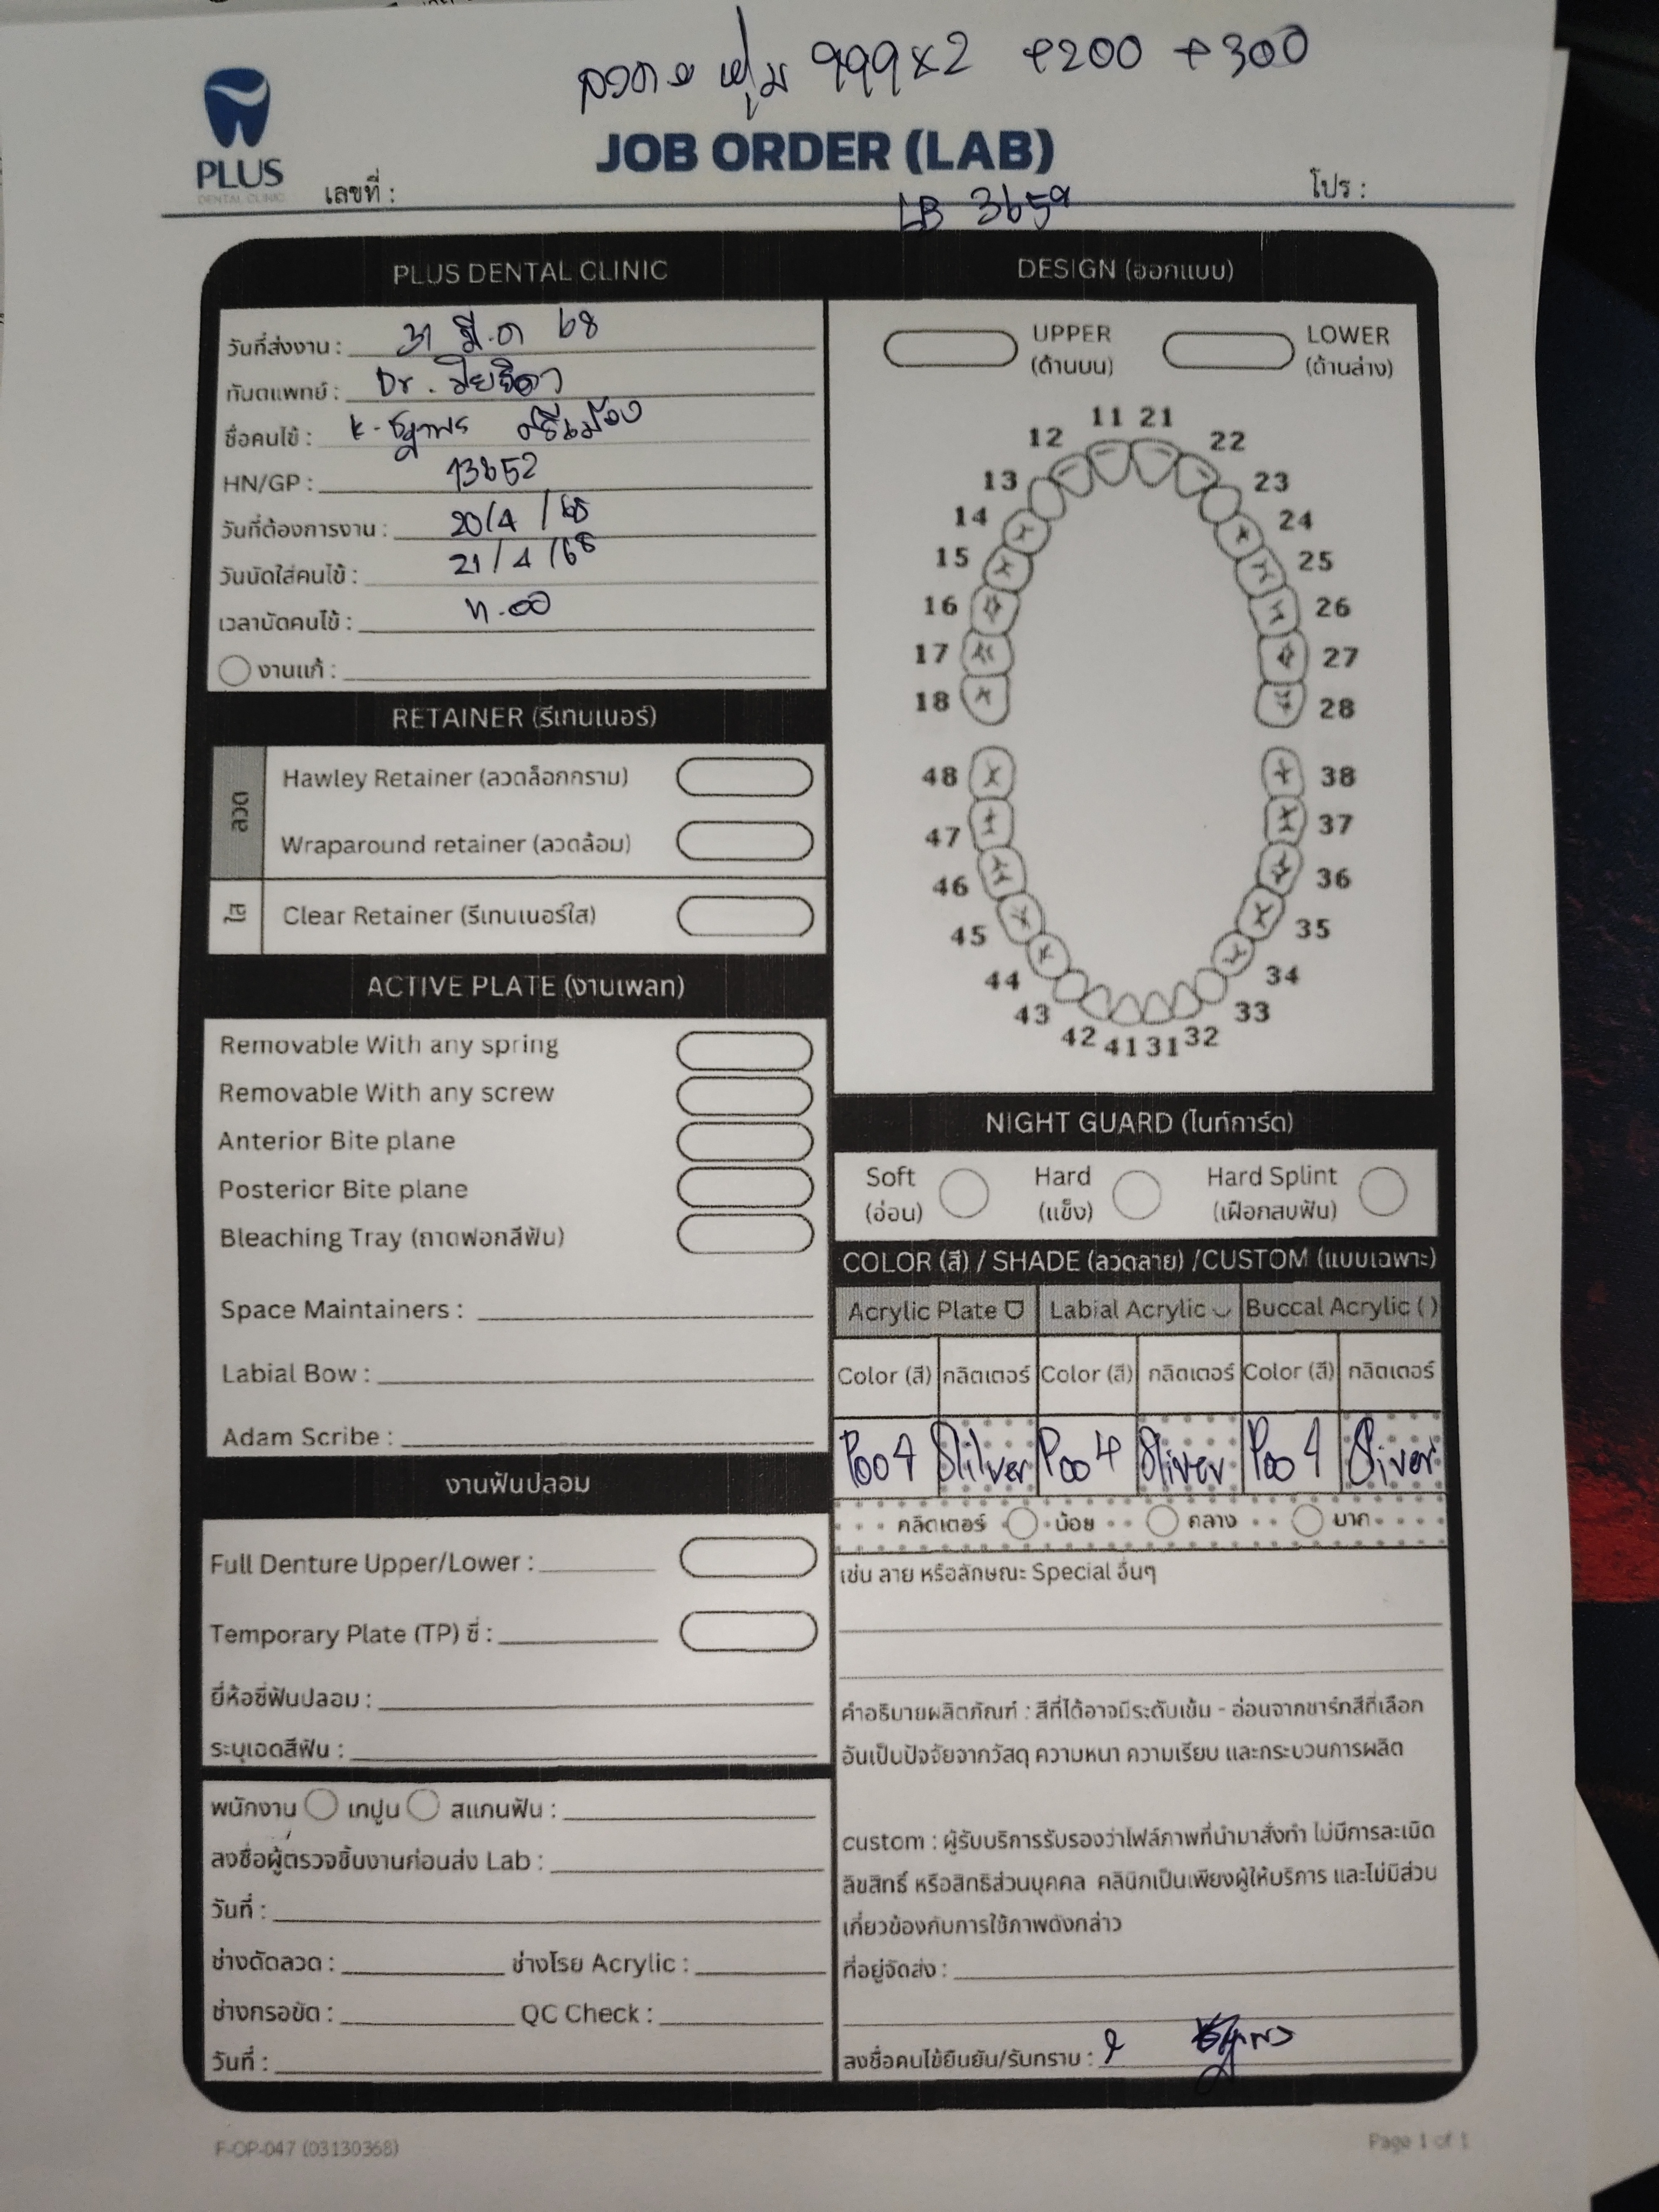 999x2 +200 +300
PLUS
DENTAL CLINIC
JOB ORDER (LAB)
เลขที่ :
LB 3659
โปร :
PLUS DENTAL CLINIC
วันที่ส่งงาน : 31 มี.ค 68
ทันตแพทย์ : Dr.
ชื่อคนไข้ : K.
HN/GP : 13652
วันที่ต้องการงาน : 20/4/68
วันนัดใส่คนไข้ : 21/4/68
เวลานัดคนไข้ :
งานแก้ :
RETAINER (รีเทนเนอร์)
ลวด
Hawley Retainer (ลวดล็อกกราม)
Wraparound retainer (ลวดล้อม)
ใส
Clear Retainer (รีเทนเนอร์ใส)
ACTIVE PLATE (งานเพลท)
Removable With any spring
Removable With any screw
Anterior Bite plane
Posterior Bite plane
Bleaching Tray (ถาดฟอกสีฟัน)
Space Maintainers :
Labial Bow :
Adam Scribe :
งานฟันปลอม
Full Denture Upper/Lower :
Temporary Plate (TP) ซี่ :
ยี่ห้อซี่ฟันปลอม :
ระบุเฉดสีฟัน :
พนักงาน เทปูน สแกนฟัน :
ลงชื่อผู้ตรวจชิ้นงานก่อนส่ง Lab :
วันที่ :
ช่างดัดลวด : ช่างโรย Acrylic :
ช่างกรอขัด : QC Check :
วันที่ :
DESIGN (ออกแบบ)
UPPER LOWER
(ด้านบน) (ด้านล่าง)
11 21
12 22
13 23
14 24
15 25
16 26
17 27
18 28
48 38
47 37
46 36
45 35
44 34
43 33
42 41 31 32
NIGHT GUARD (ไนท์การ์ด)
Soft Hard Hard Splint
(อ่อน) (แข็ง) (เฝือกสบฟัน)
COLOR (สี) / SHADE (ลวดลาย) /CUSTOM (แบบเฉพาะ)
Acrylic Plate Labial Acrylic Buccal Acrylic ( )
Color (สี) กลิตเตอร์ Color (สี) กลิตเตอร์ Color (สี) กลิตเตอร์
P004 Slilver P004 Sliver P004 Siver
กลิตเตอร์ น้อย กลาง มาก
เช่น ลาย หรือลักษณะ Special อื่นๆ
คำอธิบายผลิตภัณฑ์ : สีที่ได้อาจมีระดับเข้ม - อ่อนจากชาร์ทสีที่เลือก
อันเป็นปัจจัยจากวัสดุ ความหนา ความเรียบ และกระบวนการผลิต
custom : ผู้รับบริการรับรองว่าไฟล์ภาพที่นำมาสั่งทำ ไม่มีการละเมิด
ลิขสิทธิ์ หรือสิทธิส่วนบุคคล คลินิกเป็นเพียงผู้ให้บริการ และไม่มีส่วน
เกี่ยวข้องกับการใช้ภาพดังกล่าว
ที่อยู่จัดส่ง :
ลงชื่อคนไข้ยืนยัน/รับทราบ :
F-OP-047 (03130368)
Page 1 of 1